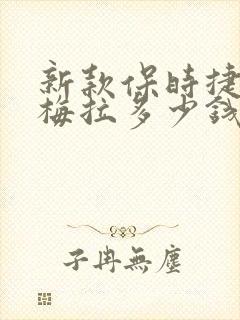 新款保时捷
梅拉多少钱
子冉無塵